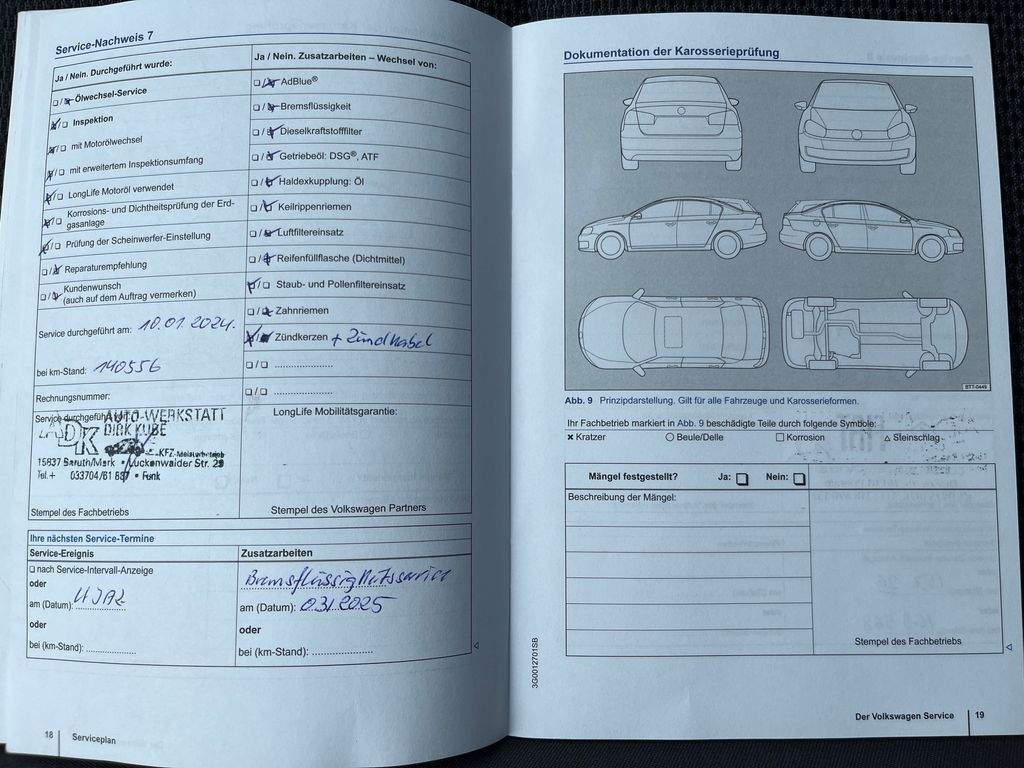 Service-Nachweis 7
Ja / Nein. Durchgeführt wurde:
Ölwechsel-Service
Inspektion
mit Motorölwechsel
mit erweitertem Inspektionsumfang
LongLife Motoröl verwendet
Korrosions- und Dichtheitsprüfung der Erd-
gasanlage
Prüfung der Scheinwerfer-Einstellung
Reparaturempfehlung
Kundenwunsch
(auch auf dem Auftrag vermerken)
Service durchgeführt am: 10.01.2024.
bei km-Stand: 140556
Rechnungsnummer:
Service durchgeführt
DK
AUTO-WERKSTATT
DIRK KUBE
KFZ-Meisterbetrieb
15837 Baruth/Mark • Luckenwalder Str. 29
Tel. + 033704/61 887 • Funk
Stempel des Fachbetriebs
Ja / Nein. Zusatzarbeiten – Wechsel von:
AdBlue®
Bremsflüssigkeit
Dieselkraftstofffilter
Getriebeöl: DSG®, ATF
Haldexkupplung: Öl
Keilrippenriemen
Luftfiltereinsatz
Reifenfüllflasche (Dichtmittel)
Staub- und Pollenfiltereinsatz
Zahnriemen
Zündkerzen + Zündkabel
LongLife Mobilitätsgarantie:
Stempel des Volkswagen Partners
Ihre nächsten Service-Termine
Service-Ereignis
nach Service-Intervall-Anzeige
oder
am (Datum):
oder
bei (km-Stand):
Zusatzarbeiten
Bremsflüssigkeitsservice
am (Datum): 03/2025
oder
bei (km-Stand):
18 Serviceplan
Dokumentation der Karosserieprüfung
BTT-0449
Abb. 9 Prinzipdarstellung. Gilt für alle Fahrzeuge und Karosserieformen.
Ihr Fachbetrieb markiert in Abb. 9 beschädigte Teile durch folgende Symbole:
× Kratzer ○ Beule/Delle □ Korrosion △ Steinschlag
Mängel festgestellt? Ja: Nein:
Beschreibung der Mängel:
Stempel des Fachbetriebs
3G0012701SB
Der Volkswagen Service 19